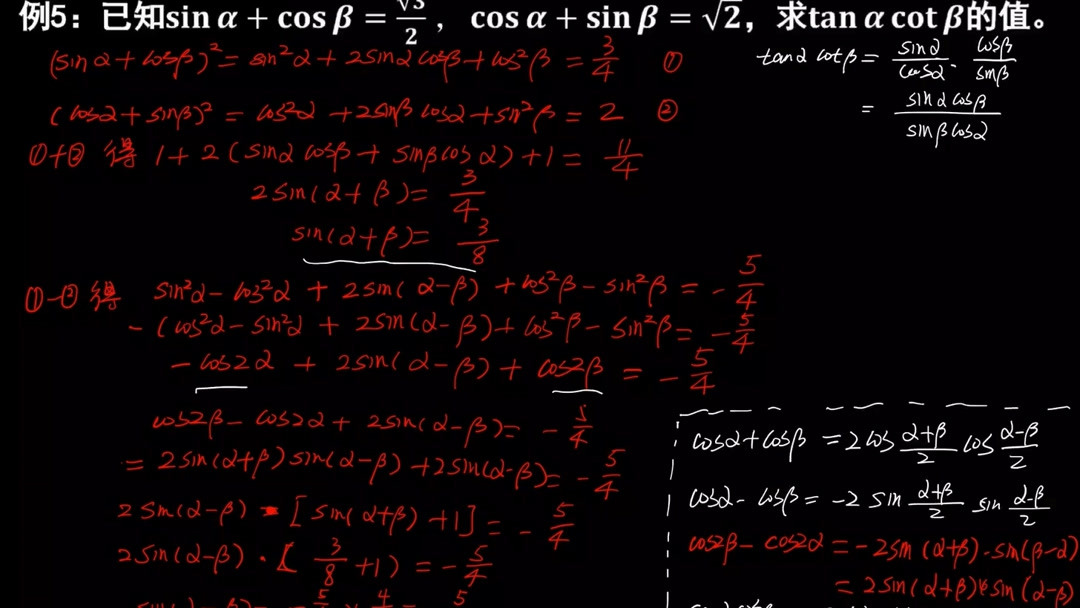 例5：已知sin α + cos β = √3/2 ，cos α + sin β = √2，求tan α cot β的值。
(sinα+cosβ)² = sin²α + 2sinα cosβ + cos²β = 3/4 ①
(cosα+sinβ)² = cos²α + 2sinβ cosα + sin²β = 2 ②
①+② 得 1 + 2(sinα cosβ + sinβ cosα) + 1 = 11/4
2sin(α+β) = 3/4
sin(α+β) = 3/8
①-② 得 sin²α - cos²α + 2sin(α-β) + cos²β - sin²β = - 5/4
- (cos²α - sin²α + 2sin(α-β) + cos²β - sin²β = - 5/4
- cos2α + 2sin(α-β) + cos2β = - 5/4
cos2β - cos2α + 2sin(α-β) = - 5/4
= 2sin(α+β)sin(α-β) + 2sin(α-β) = - 5/4
2sin(α-β) · [sin(α+β) + 1] = - 5/4
2sin(α-β) · [ 3/8 + 1) = - 5/4
tanα cotβ = sinα/cosα · cosβ/sinβ
= sinα cosβ / sinβ cosα
cosα + cosβ = 2cos (α+β)/2 cos (α-β)/2
cosα - cosβ = -2 sin (α+β)/2 sin (α-β)/2
cos2β - cos2α = -2sin(α+β)·sin(β-α)
= 2sin(α+β) sin(α-β)